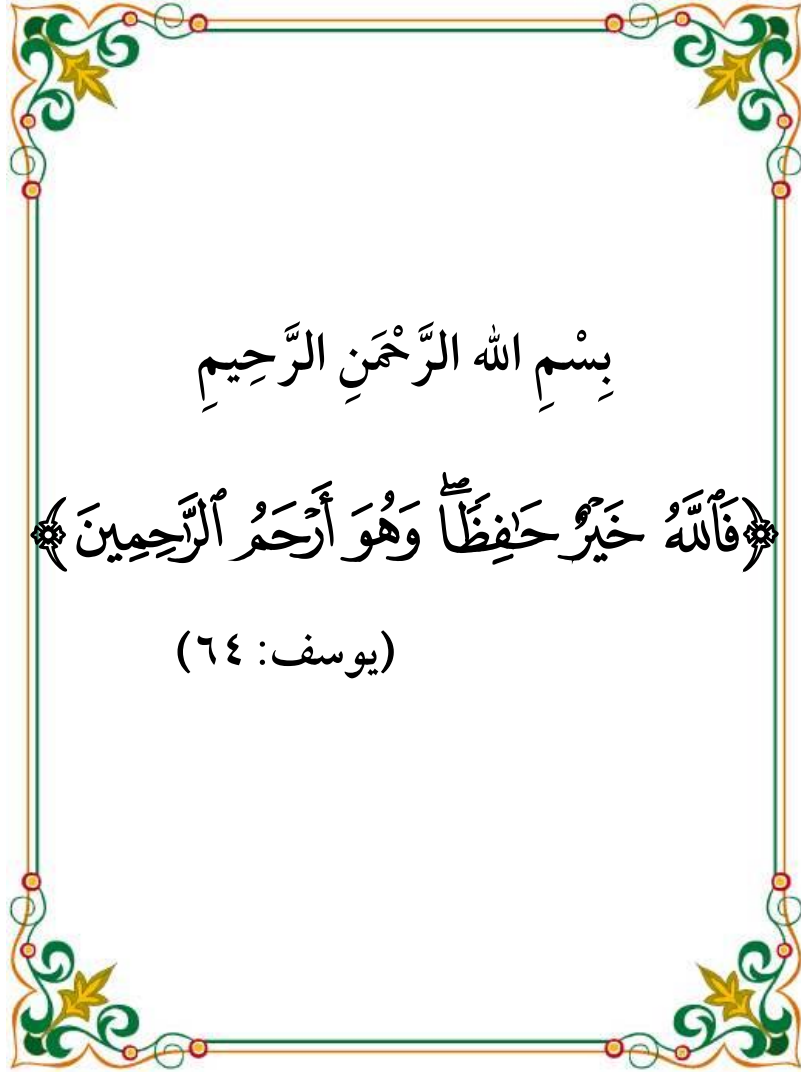 بِسْمِ الله الرَّحْمَنِ الرَّحِيمِ
﴿فَٱللَّهُ خَيْرٌ حَٰفِظٗاۖ وَهُوَ أَرۡحَمُ ٱلرَّٰحِمِينَ﴾
(يوسف: ٦٤)